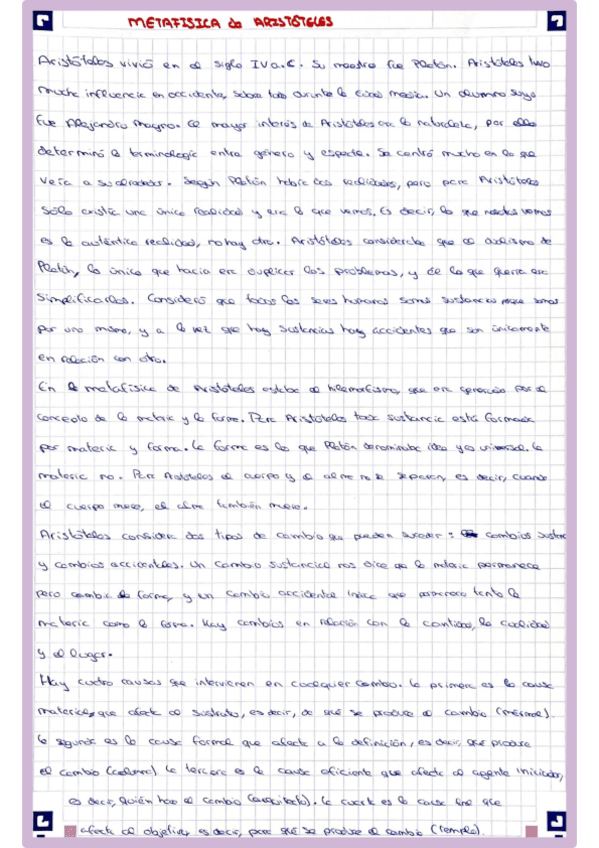 METAFISICA de ARISTÓTELES
Aristóteles vivió en el siglo IV a.C. Su maestro fue Platón. Aristóteles tuvo
mucha influencia en occidente, sobre todo durante la edad media. Un alumno suyo
fue Alejandro Magno. El mayor interés de Aristóteles era la naturaleza, por ello
determinó la terminología entre género y especie. Se centró mucho en lo que
veía a su alrededor. Según Platón había dos realidades, pero para Aristóteles
sólo existía una única realidad y era la que vemos. Es decir, lo que nosotros vemos
es la auténtica realidad, no hay otra. Aristóteles consideraba que el dualismo de
Platón, lo único que hacía era duplicar los problemas, y de lo que quería era
simplificarlos. Consideró que todos los seres humanos somos sustancias porque somos
por uno mismo, y a la vez que hay sustancias hay accidentes que son únicamente
en relación con otro.
En la metafísica de Aristóteles estaba el hilemorfismo, que era generado por el
concepto de la materia y la forma. Para Aristóteles toda sustancia está formada
por materia y forma. La forma es lo que Platón denominaba idea y es universal. La
materia no. Para Aristóteles el cuerpo y el alma no se separan, es decir, cuando
el cuerpo muere, el alma también muere.
Aristóteles considera dos tipos de cambio que pueden suceder: cambios sustanc
y cambios accidentales. Un cambio sustancial nos dice que la materia permanece
pero cambia la forma, y un cambio accidental indica que permanece tanto la
materia como la forma. Hay cambios en relación con la cantidad, la cualidad
y el lugar.
Hay cuatro causas que intervienen en cualquier cambio. La primera es la causa
material, que afecta al sustrato, es decir, de qué se produce el cambio (mármol).
La segunda es la causa formal que afecta a la definición, es decir, qué produce
el cambio (columna). La tercera es la causa eficiente que afecta al agente iniciador,
es decir, quién hace el cambio (arquitecto). La cuarta es la causa final que
afecta al objetivo, es decir, para qué se produce el cambio (templo).